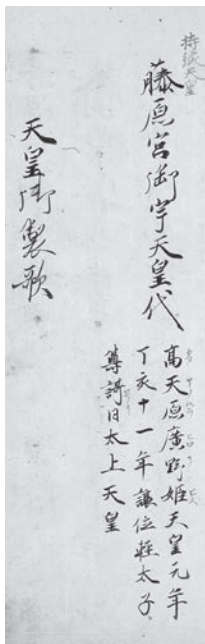 持統天皇
藤原宮御宇天皇代
高天原廣野姫天皇元年
丁亥十一年讓位輕太子
尊號曰太上天皇
天皇御製歌